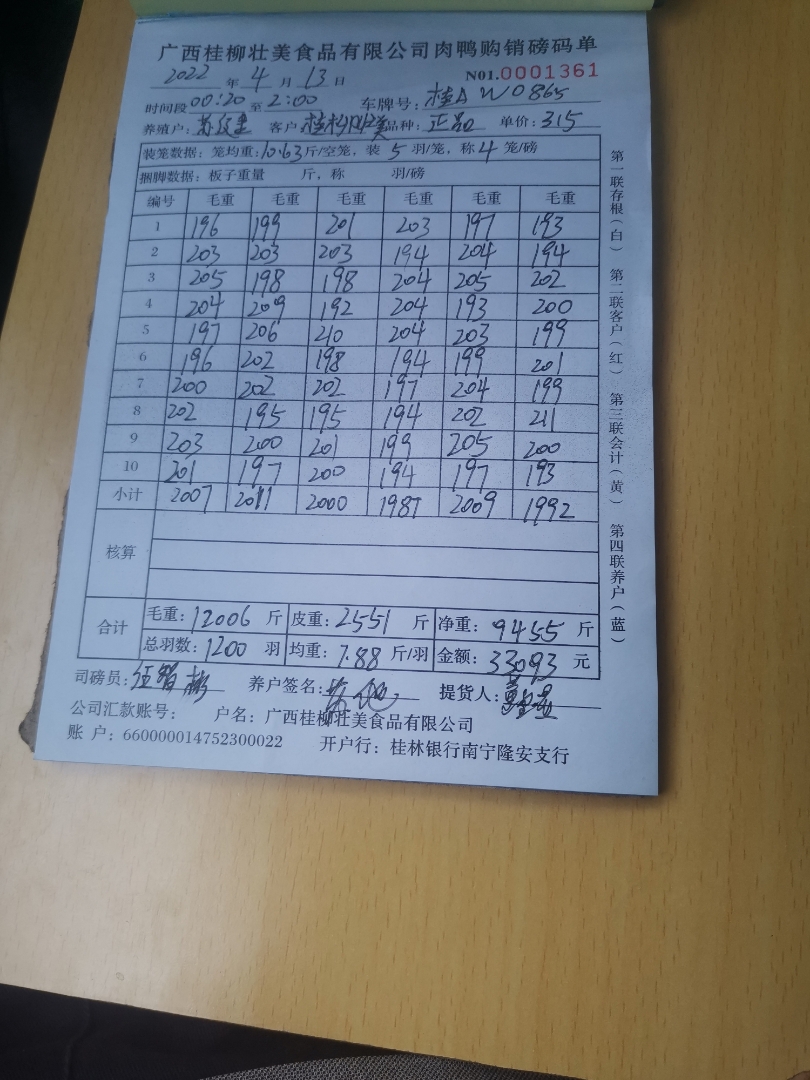 广西桂柳壮美食品有限公司肉鸭购销磅码单
2022 年 4 月 13 日 N01.0001361
时间段 00:20 至 2:00 车牌号: 桂A W0865
养殖户: 客户: 品种: 正品 单价: 3.5
装笼数据: 笼均重: 10.63 斤/空笼, 装 5 羽/笼, 称 4 笼/磅
捆脚数据: 板子重量 斤, 称 羽/磅
编号 毛重 毛重 毛重 毛重 毛重 毛重
1 196 199 201 203 197 193
2 203 203 203 194 204 194
3 205 198 198 204 205 202
4 204 209 192 204 193 200
5 197 206 210 204 203 199
6 196 202 198 194 199 201
7 200 202 202 197 204 199
8 202 195 195 194 202 211
9 203 200 201 199 205 200
10 201 197 200 194 197 193
小计 2007 2011 2000 1987 2009 1992
核算
合计 毛重: 12006 斤 皮重: 2551 斤 净重: 9455 斤
总羽数: 1200 羽 均重: 7.88 斤/羽 金额: 33093 元
司磅员: 养户签名: 提货人:
公司汇款账号: 户名: 广西桂柳壮美食品有限公司
账 户: 660000014752300022 开户行: 桂林银行南宁隆安支行
第一联存根(白) 第二联客户(红) 第三联会计(黄) 第四联养户(蓝)